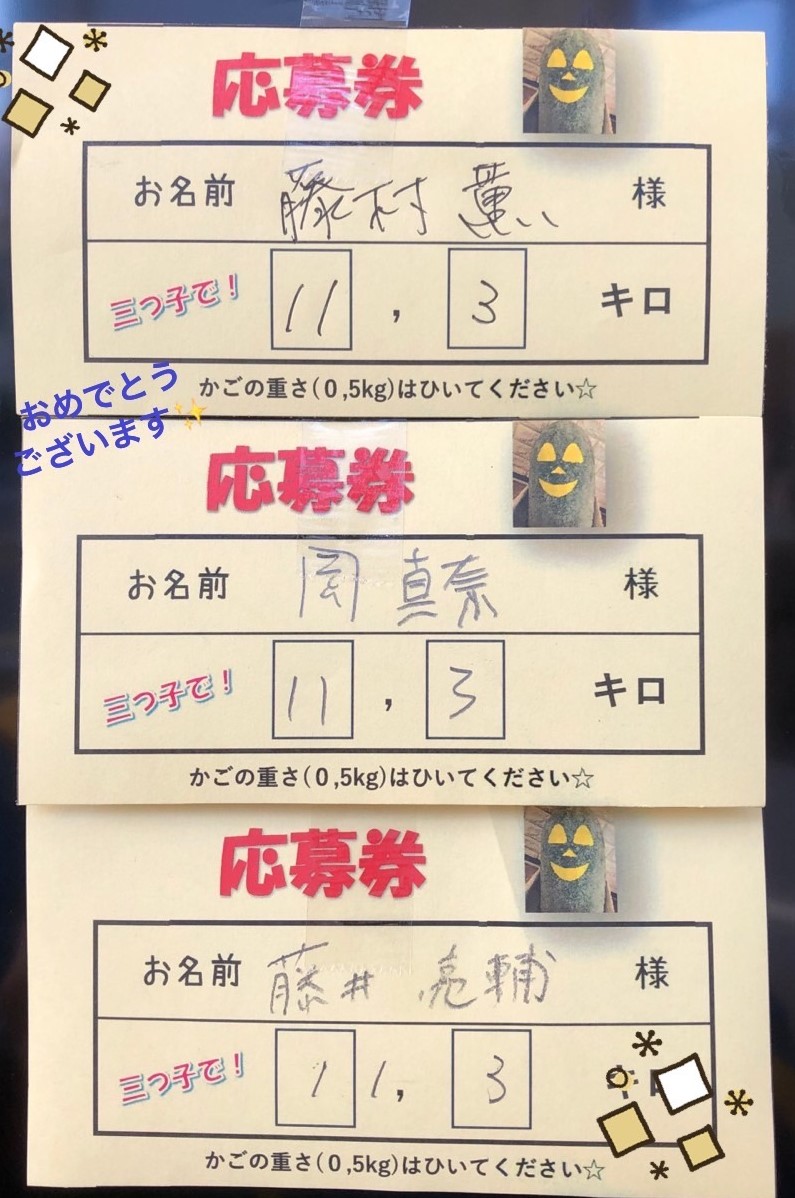 応募券
お名前 藤村 薫 様
三つ子で! 11 , 3 キロ
かごの重さ(0,5kg)はひいてください☆
おめでとう
ございます✨
応募券
お名前 岡 真奈 様
三つ子で! 11 , 3 キロ
かごの重さ(0,5kg)はひいてください☆
応募券
お名前 藤井 亮輔 様
三つ子で! 11, 3
かごの重さ(0,5kg)はひいてください☆